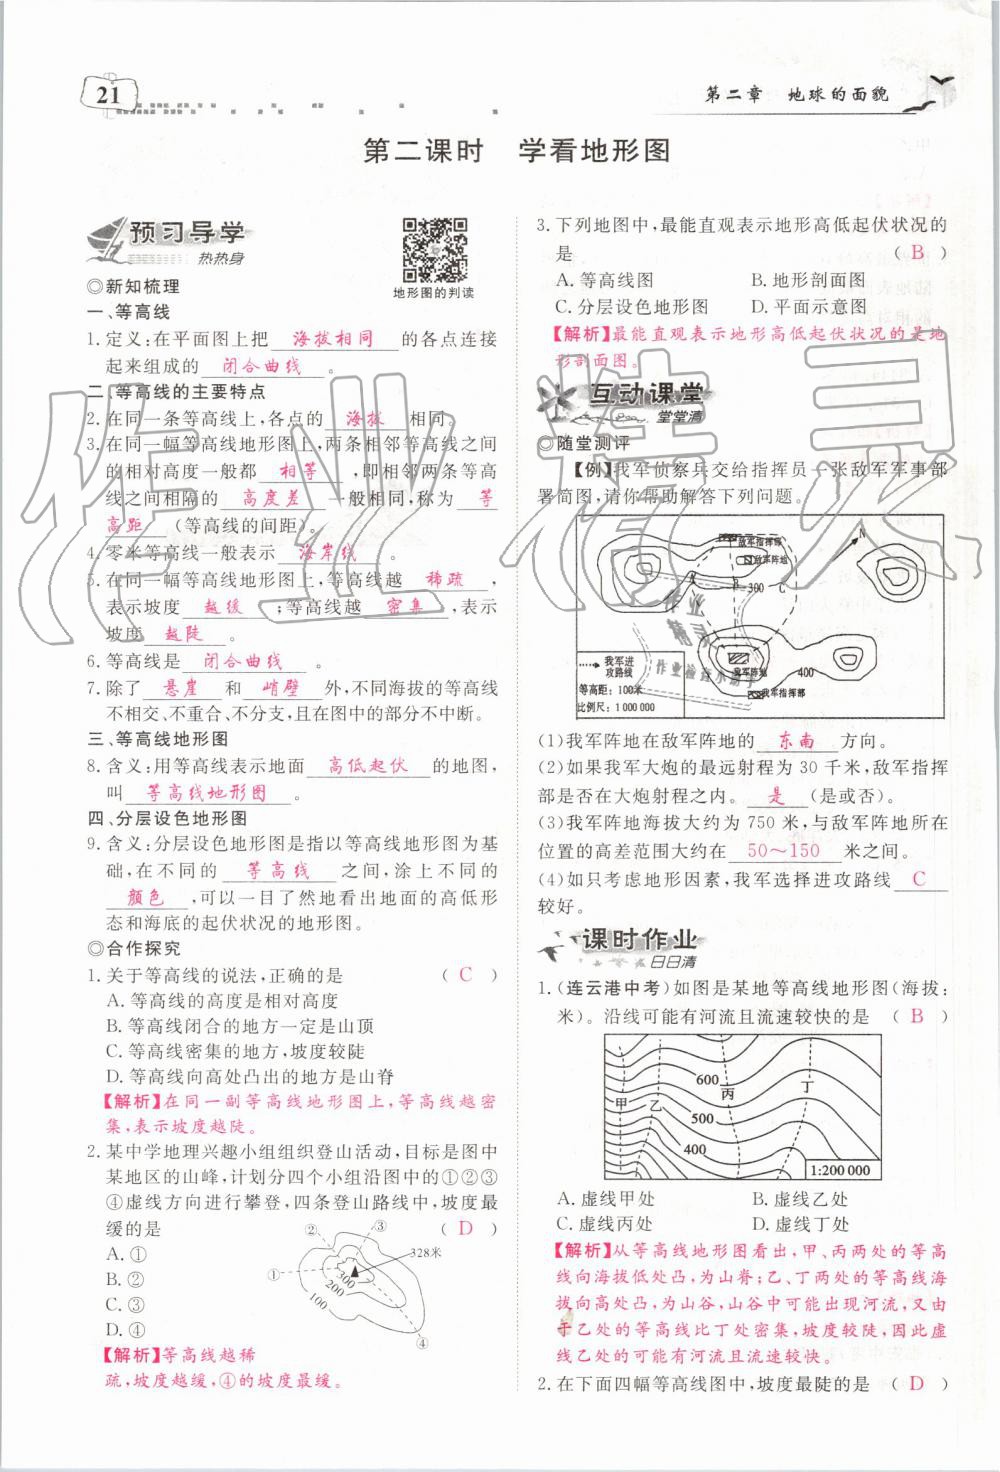 21
第二章 地球的面貌
第二课时 学看地形图
预习导学
热热身
地形图的判读
◎新知梳理
一、等高线
1.定义:在平面图上把 海拔相同 的各点连接
起来组成的 闭合曲线 。
二、等高线的主要特点
2.在同一条等高线上,各点的 海拔 相同。
3.在同一幅等高线地形图上,两条相邻等高线之间
的相对高度一般都 相等 ,即相邻两条等高
线之间相隔的 高度差 一般相同,称为 等
高距 (等高线的间距)。
4.零米等高线一般表示 海岸线 。
5.在同一幅等高线地形图上,等高线越 稀疏 ,
表示坡度 越缓 ;等高线越 密集 ,表示
坡度 越陡 。
6.等高线是 闭合曲线 。
7.除了 悬崖 和 峭壁 外,不同海拔的等高线
不相交、不重合、不分支,且在图中的部分不中断。
三、等高线地形图
8.含义:用等高线表示地面 高低起伏 的地图,
叫 等高线地形图 。
四、分层设色地形图
9.含义:分层设色地形图是指以等高线地形图为基
础,在不同的 等高线 之间,涂上不同的
颜色 ,可以一目了然地看出地面的高低形
态和海底的起伏状况的地形图。
◎合作探究
1.关于等高线的说法,正确的是 ( C )
A.等高线的高度是相对高度
B.等高线闭合的地方一定是山顶
C.等高线密集的地方,坡度较陡
D.等高线向高处凸出的地方是山脊
【解析】在同一副等高线地形图上,等高线越密
集,表示坡度越陡。
2.某中学地理兴趣小组组织登山活动,目标是图中
某地区的山峰,计划分四个小组沿图中的①②③
④虚线方向进行攀登,四条登山路线中,坡度最
缓的是 ( D )
A.①
B.②
C.③
D.④
②
③
328米
①
300
200
100
④
【解析】等高线越稀
疏,坡度越缓,④的坡度最缓。
3.下列地图中,最能直观表示地形高低起伏状况的
是 ( B )
A.等高线图 B.地形剖面图
C.分层设色地形图 D.平面示意图
【解析】最能直观表示地形高低起伏状况的是地
形剖面图。
互动课堂
堂堂清
◎随堂测评
【例】我军侦察兵交给指挥员一张敌军军事部
署简图,请你帮助解答下列问题。
敌军指挥部
敌军阵地
N
A
B
300
C
我军进
攻路线
等高距: 100米
比例尺: 1 000 000
我军阵地
400
我军指挥部
(1)我军阵地在敌军阵地的 东南 方向。
(2)如果我军大炮的最远射程为 30 千米,敌军指挥
部是否在大炮射程之内。 是 (是或否)。
(3)我军阵地海拔大约为 750 米,与敌军阵地所在
位置的高差范围大约在 50～150 米之间。
(4)如只考虑地形因素,我军选择进攻路线 C
较好。
课时作业
日日清
1.(连云港中考)如图是某地等高线地形图(海拔:
米)。沿线可能有河流且流速较快的是 ( B )
600
500
400
甲
乙
丙
丁
1:200 000
A.虚线甲处 B.虚线乙处
C.虚线丙处 D.虚线丁处
【解析】从等高线地形图看出,甲、丙两处的等高
线向海拔低处凸,为山脊;乙、丁两处的等高线海
拔向高处凸,为山谷,山谷中可能出现河流,又由
于乙处的等高线比丁处密集,坡度较陡,因此虚
线乙处的可能有河流且流速较快。
2.在下面四幅等高线图中,坡度最陡的是 ( D )
作业精灵